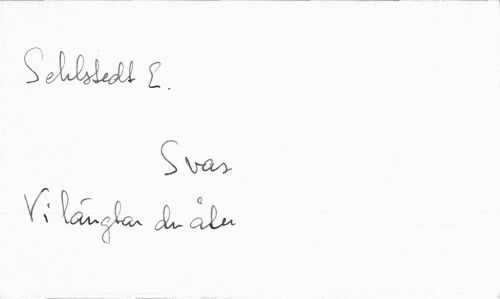 Sehlstedt E.
Svar
Vi längtar du åter